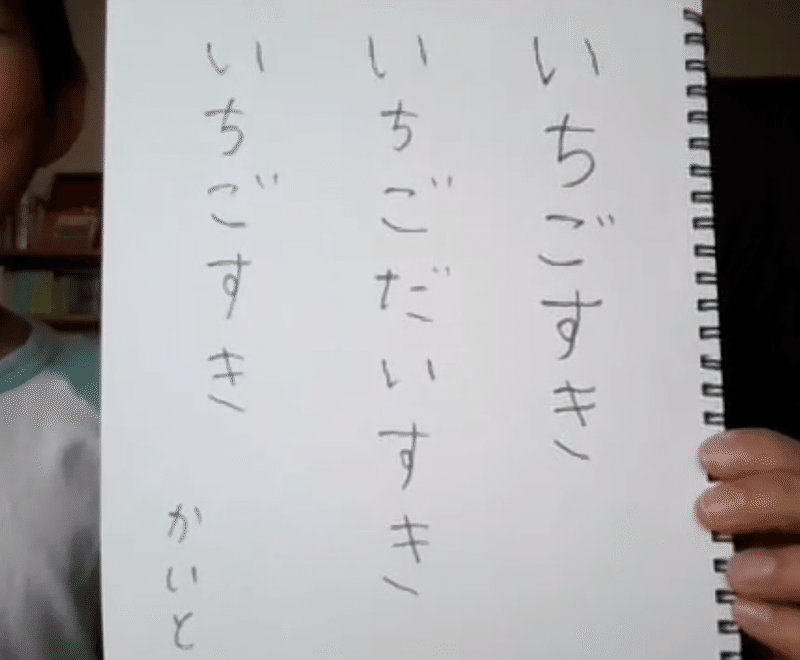 いちごすき
いちごだいすき
いちごすき
かいと